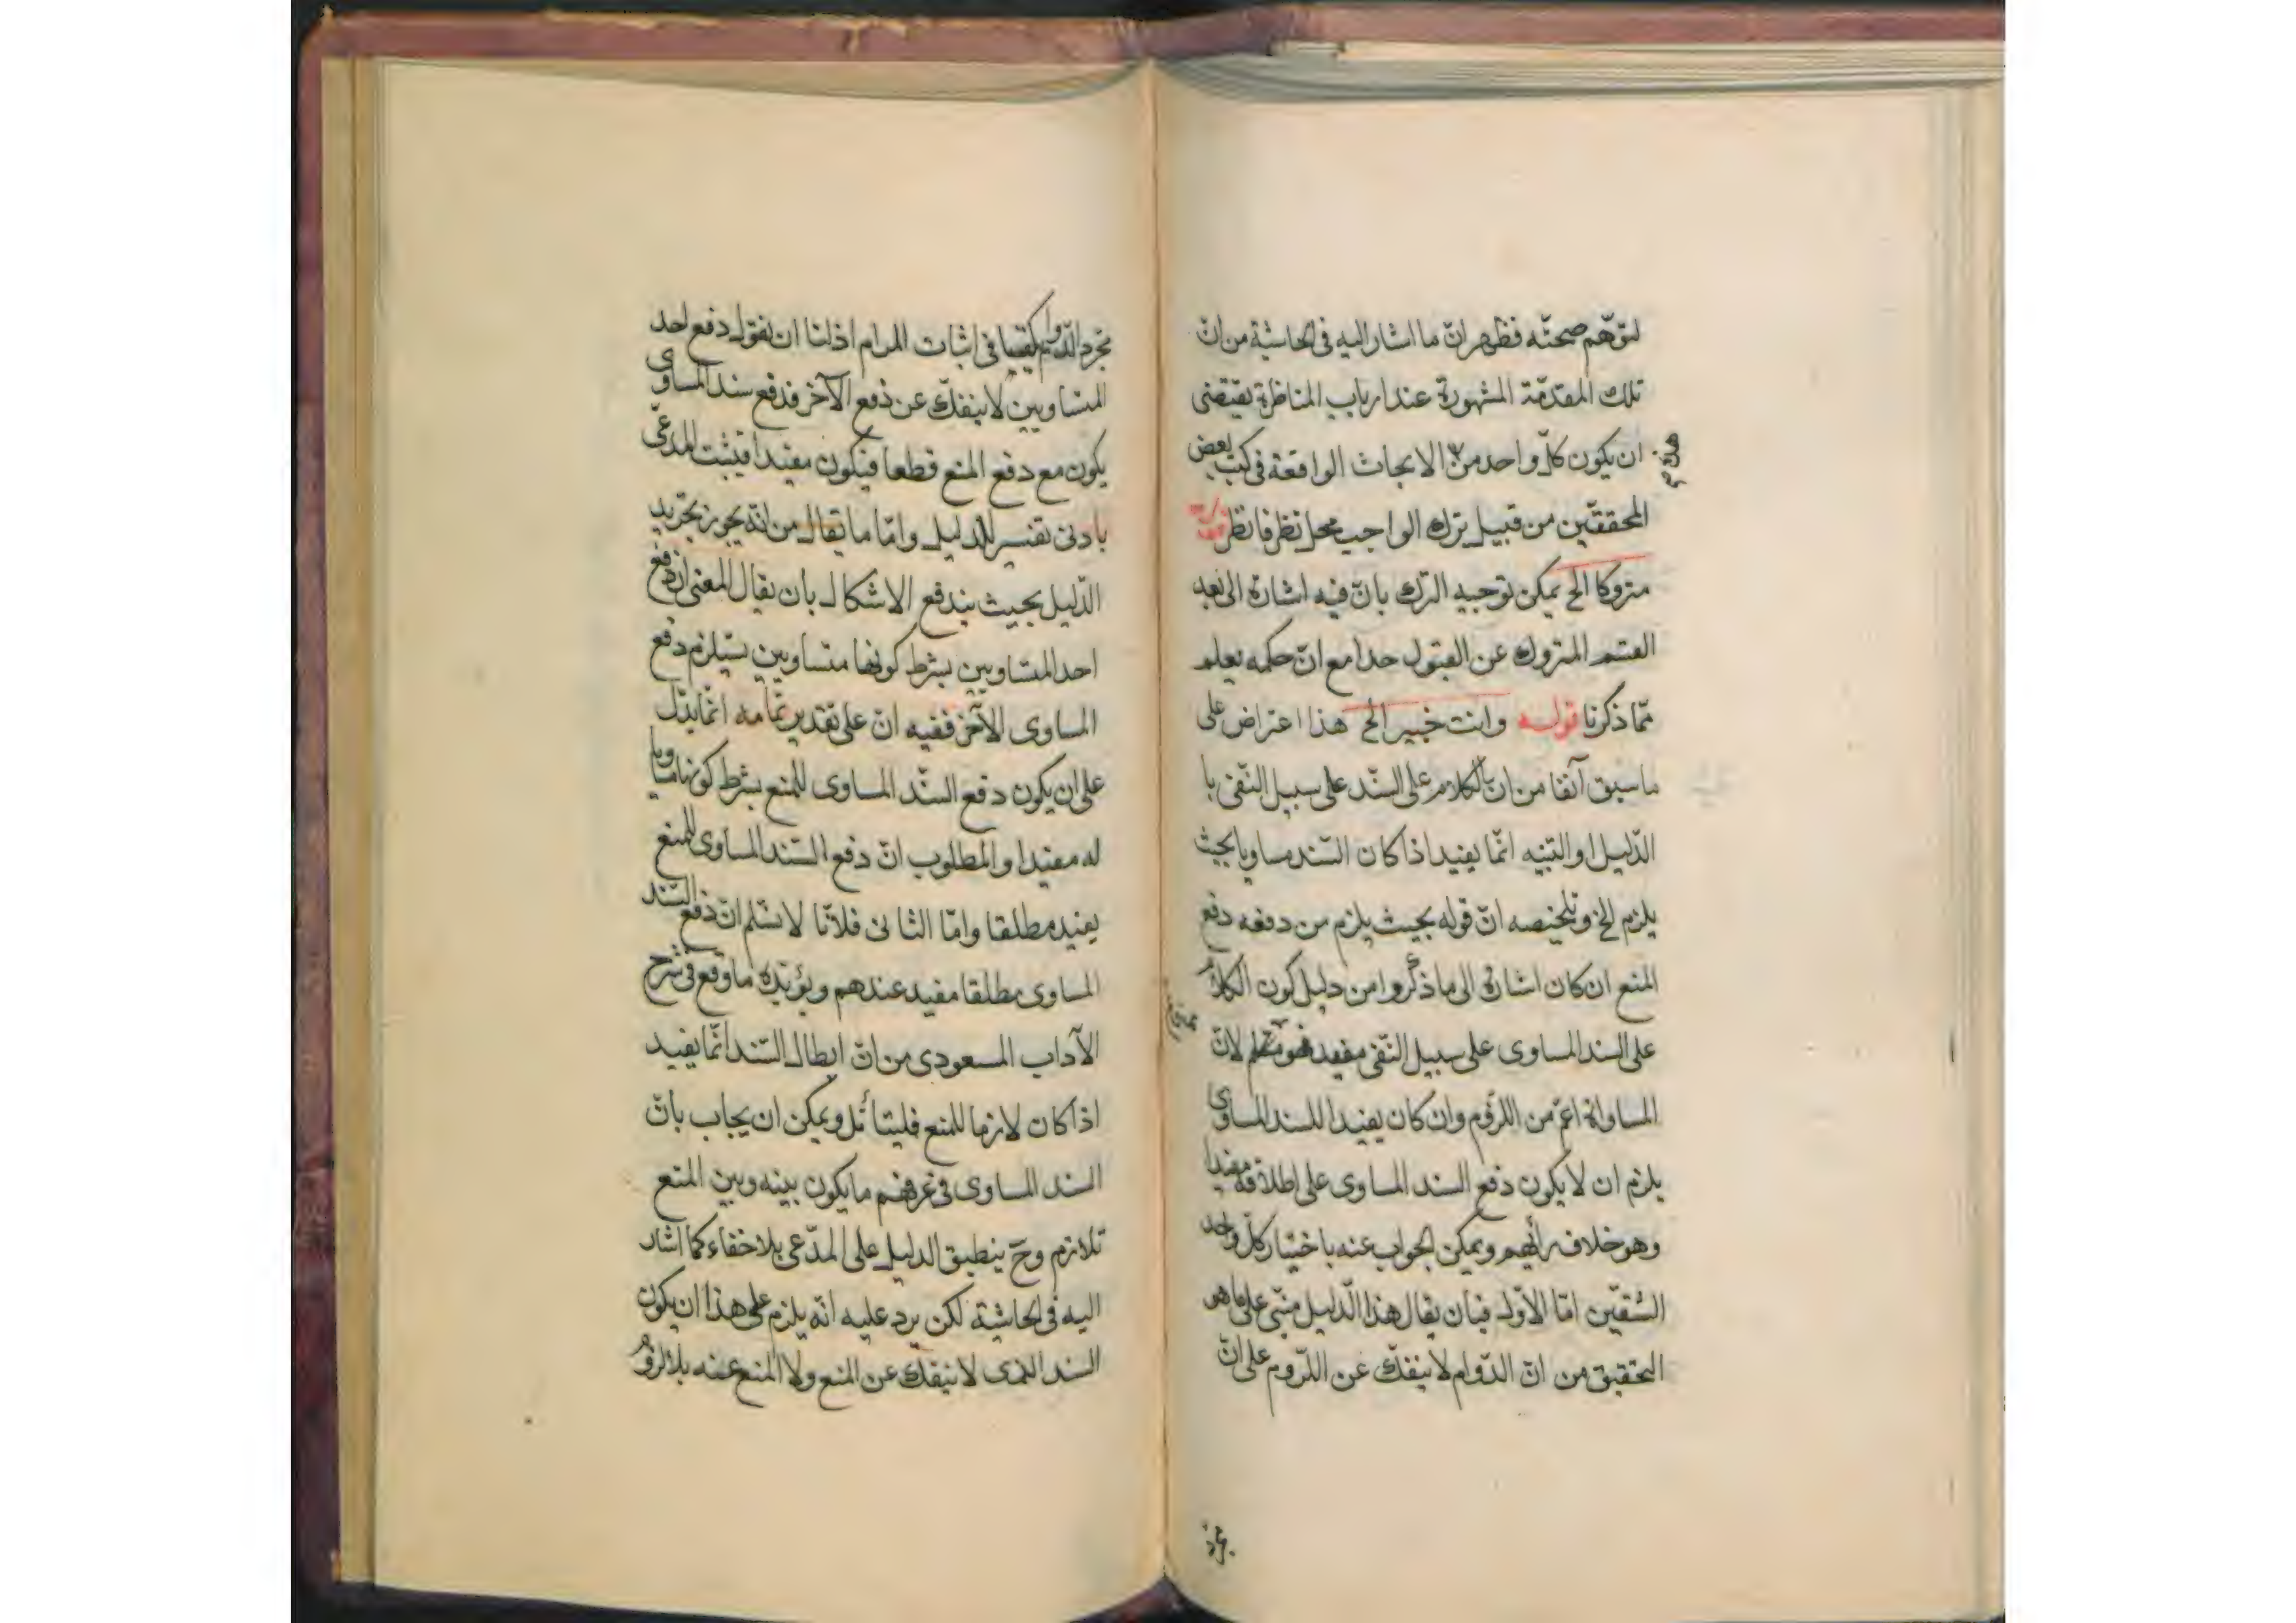 لتوهّم صحّته فظهر انّ ما اشار اليه فى الحاشية من انّ
تلك المقدّمة المشهورة عند ارباب المناظرة يقتضى
ان يكون كلّ واحد من الابحاث الواقعة فى كتب بعض
المحققين من قبيل ترك الواجب محل نظر فانظر
متروكا الخ يمكن توجيه الترك بانّ فيه اشارة الى بعد
القسم المتروك عن القبول جدا مع انّ حكمه يعلم
ممّا ذكرنا قوله وانت خبير الخ هذا اعتراض على
ما سبق آنفا من انّ الكلام على السّند على سبيل النّفى با
الدّليل او التنبيه انّما يفيد اذا كان السّند مساويا بحيث
يلزم الخ وتلخيصه انّ قوله بحيث يلزم من دفعه دفع
المنع ان كان اشارة الى ما ذكروا من دليل كون الكلام
على السند المساوى على سبيل النّفى مفيد فهو لانّ
المساواة اعمّ من اللزوم وان كان يفيدا للسند المساوى
يلزم ان لا يكون دفع السند المساوى على اطلاقه مفيدا
وهو خلاف رأيهم ويمكن الجواب عنه باختيار كلّ واحد
الشّقين امّا الاوّل فبان يقال هذا الدّليل مبنّى على ما هو
التحقيق من انّ الدّوام لا ينفكّ عن اللّزوم على انّ
مجرد الدّوام يكفينا فى اثبات المرام اذ لنا ان نقول دفع احد
المتساويين لا ينفكّ عن دفع الآخر فدفع سند المساوى
يكون مع دفع المنع قطعا فيكون مفيدا فيثبت المدعّى
بادنى تفسير للدليل وامّا ما يقال من انّه يجوز تجريد
الدّليل بحيث يندفع الاشكال بان يقال المعنى ان دفع
احد المتساويين بشرط كونهما متساويين يستلزم دفع
المساوى الآخر ففيه انّ على تقدير تمامه انّما يدّل
على ان يكون دفع السنّد المساوى للمنع بشرط كونه مساويا
له مفيدا والمطلوب انّ دفع السّند المساوى للمنع
يفيد مطلقا وامّا الثانى فلانّا لا نسّلم انّ دفع السّند
المساوى مطلقا مفيد عندهم ويؤيّده ما وقع فى شرح
الآداب المسعودى من انّ ابطال السّند انّما يفيد
اذا كان لازما للمنع فليتأمّل ويمكن ان يجاب بانّ
السند المساوى فى عرفهم ما يكون بينه وبين المنع
تلازم وح ينطبق الدليل على المدّعى بلا خفاء كما اشار
اليه فى الحاشية لكن يرد عليه انّه يلزم على هذا ان يكون
السند الذى لا ينفكّ عن المنع ولا المنع عنه بلا لزوم